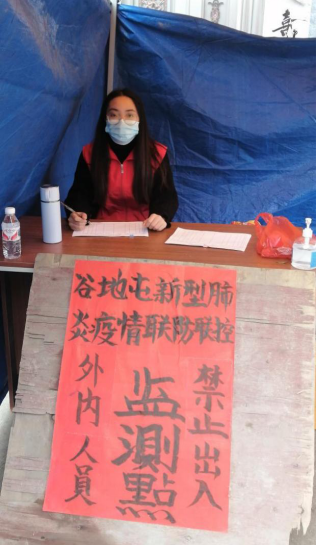 谷地屯新型肺
炎疫情联防联控
外内人員
监測點
禁止出入